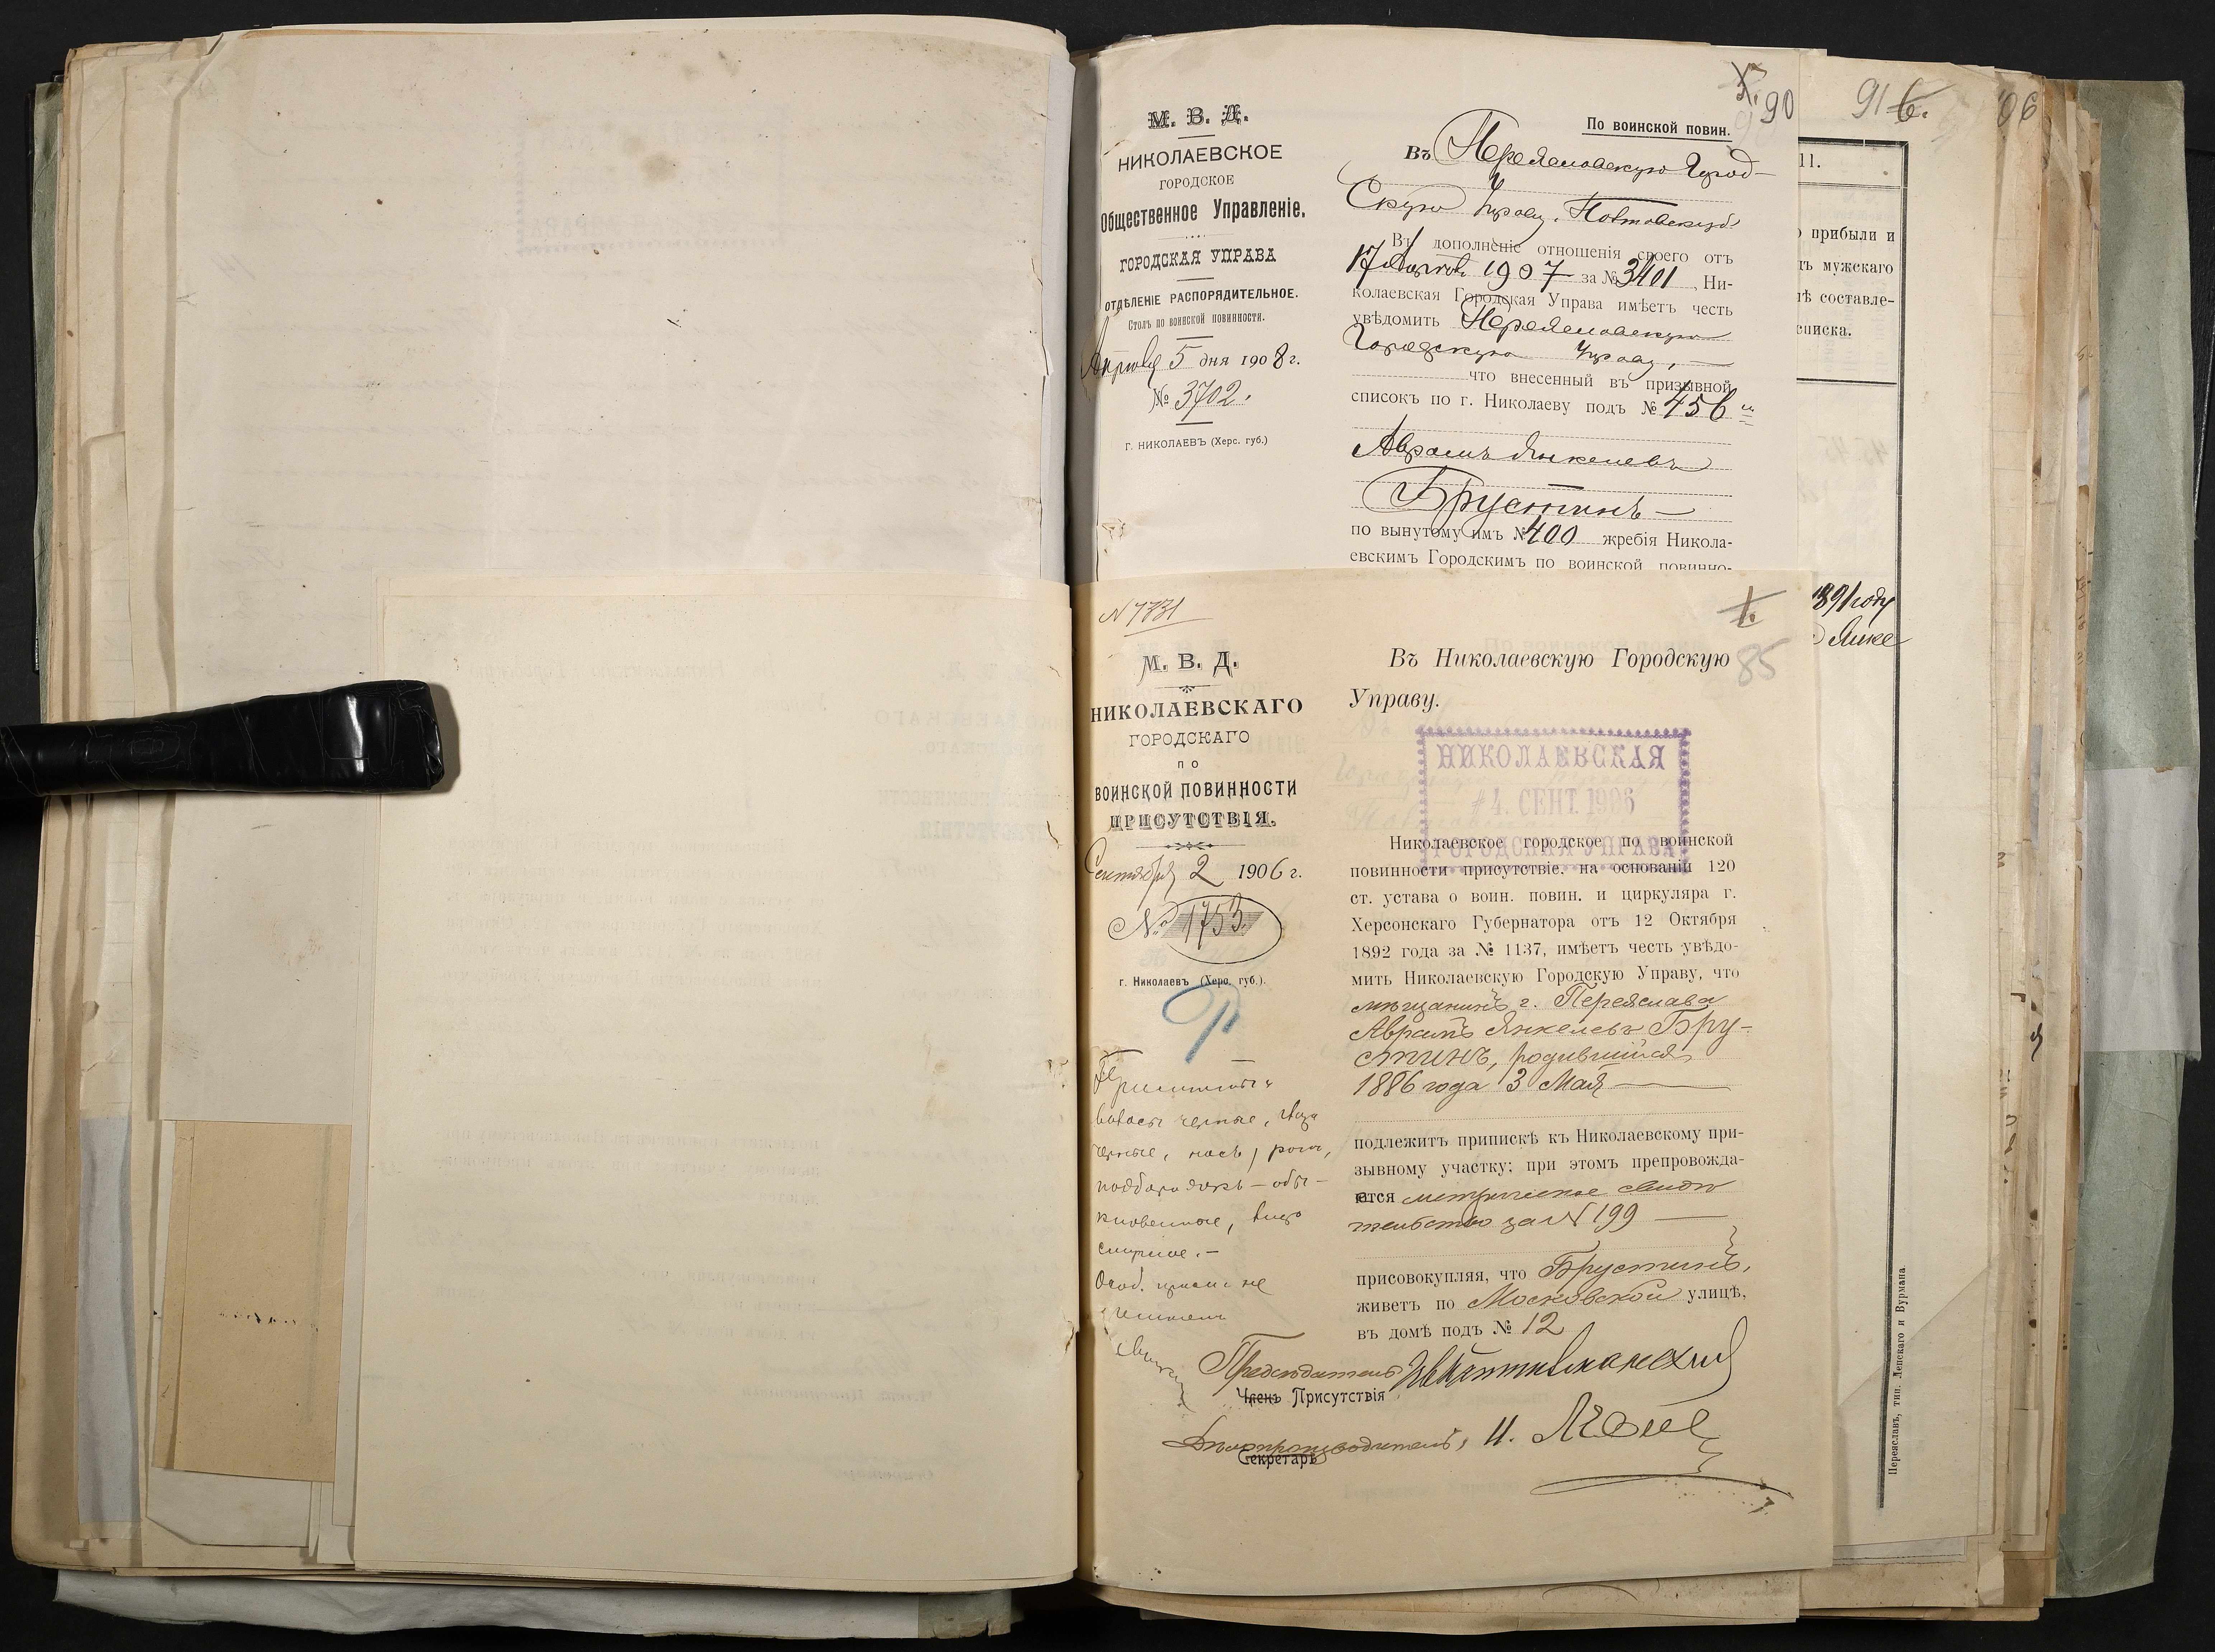 90
М. В. Д.
НИКОЛАЕВСКОЕ
ГОРОДСКОЕ
Общественное Управленіе.
ГОРОДСКАЯ УПРАВА
ОТДѢЛЕНІЕ РАСПОРЯДИТЕЛЬНОЕ.
Столъ по воинской повинности.
Апрѣля 5 дня 1908 г.
№ 3702.
г. НИКОЛАЕВЪ (Херс. губ.)
По воинской повин.
Въ Переяславскую Город-
скую Управу, Полтавской
Въ дополненіе отношенія своего отъ
17 1907 за № 3401, Ни-
колаевская Городская Управа имѣетъ честь
увѣдомить Переяславскую
Городскую Управу,
что внесенный въ призывной
списокъ по г. Николаеву подъ № 456
Аврамъ Янкелевъ
Брустинъ
по вынутому имъ № 400 жребія Никола-
евскимъ Городскимъ по воинской повинно-
91 6.
96
11.
прибыли и
мужскаго
составле-
списка.
891 году
Янке
Переяславъ, тип. Лепскаго и Вурмана
N 7331
М. В. Д.
НИКОЛАЕВСКАГО
ГОРОДСКАГО
ПО
ВОИНСКОЙ ПОВИННОСТИ
ПРИСУТСТВІЯ.
Сентября 2 1906 г.
№ 1753.
г. Николаевъ (Херс. губ.).
волосы черные, глаза
черные, носъ, ротъ,
подбородокъ – обы-
кновенные, лицо
смуглое. –
Особ. примѣтъ не
85
Въ Николаевскую Городскую
Управу.
НИКОЛАЕВСКАЯ
4. СЕНТ. 1906
ГОРОДСКАЯ УПРАВА
Николаевское городское по воинской
повинности присутствіе. на основаніи 120
ст. устава о воин. повин. и циркуляра г.
Херсонскаго Губернатора отъ 12 Октября
1892 года за № 1137, имѣетъ честь увѣдо-
мить Николаевскую Городскую Управу, что
мѣщанинъ г. Переяслава
Аврамъ Янкелевъ Бру-
стинъ, родившійся
1886 года 3 Мая
подлежитъ припискѣ къ Николаевскому при-
зывному участку; при этомъ препровожда-
ется метрическое свидѣ
тельство за N 199
присовокупляя, что Брустинъ,
живетъ по Московской улицѣ,
въ домѣ подъ № 12
Предсѣдатель
Членъ Присутствія
Дѣлопроизводитель,
Секретарь